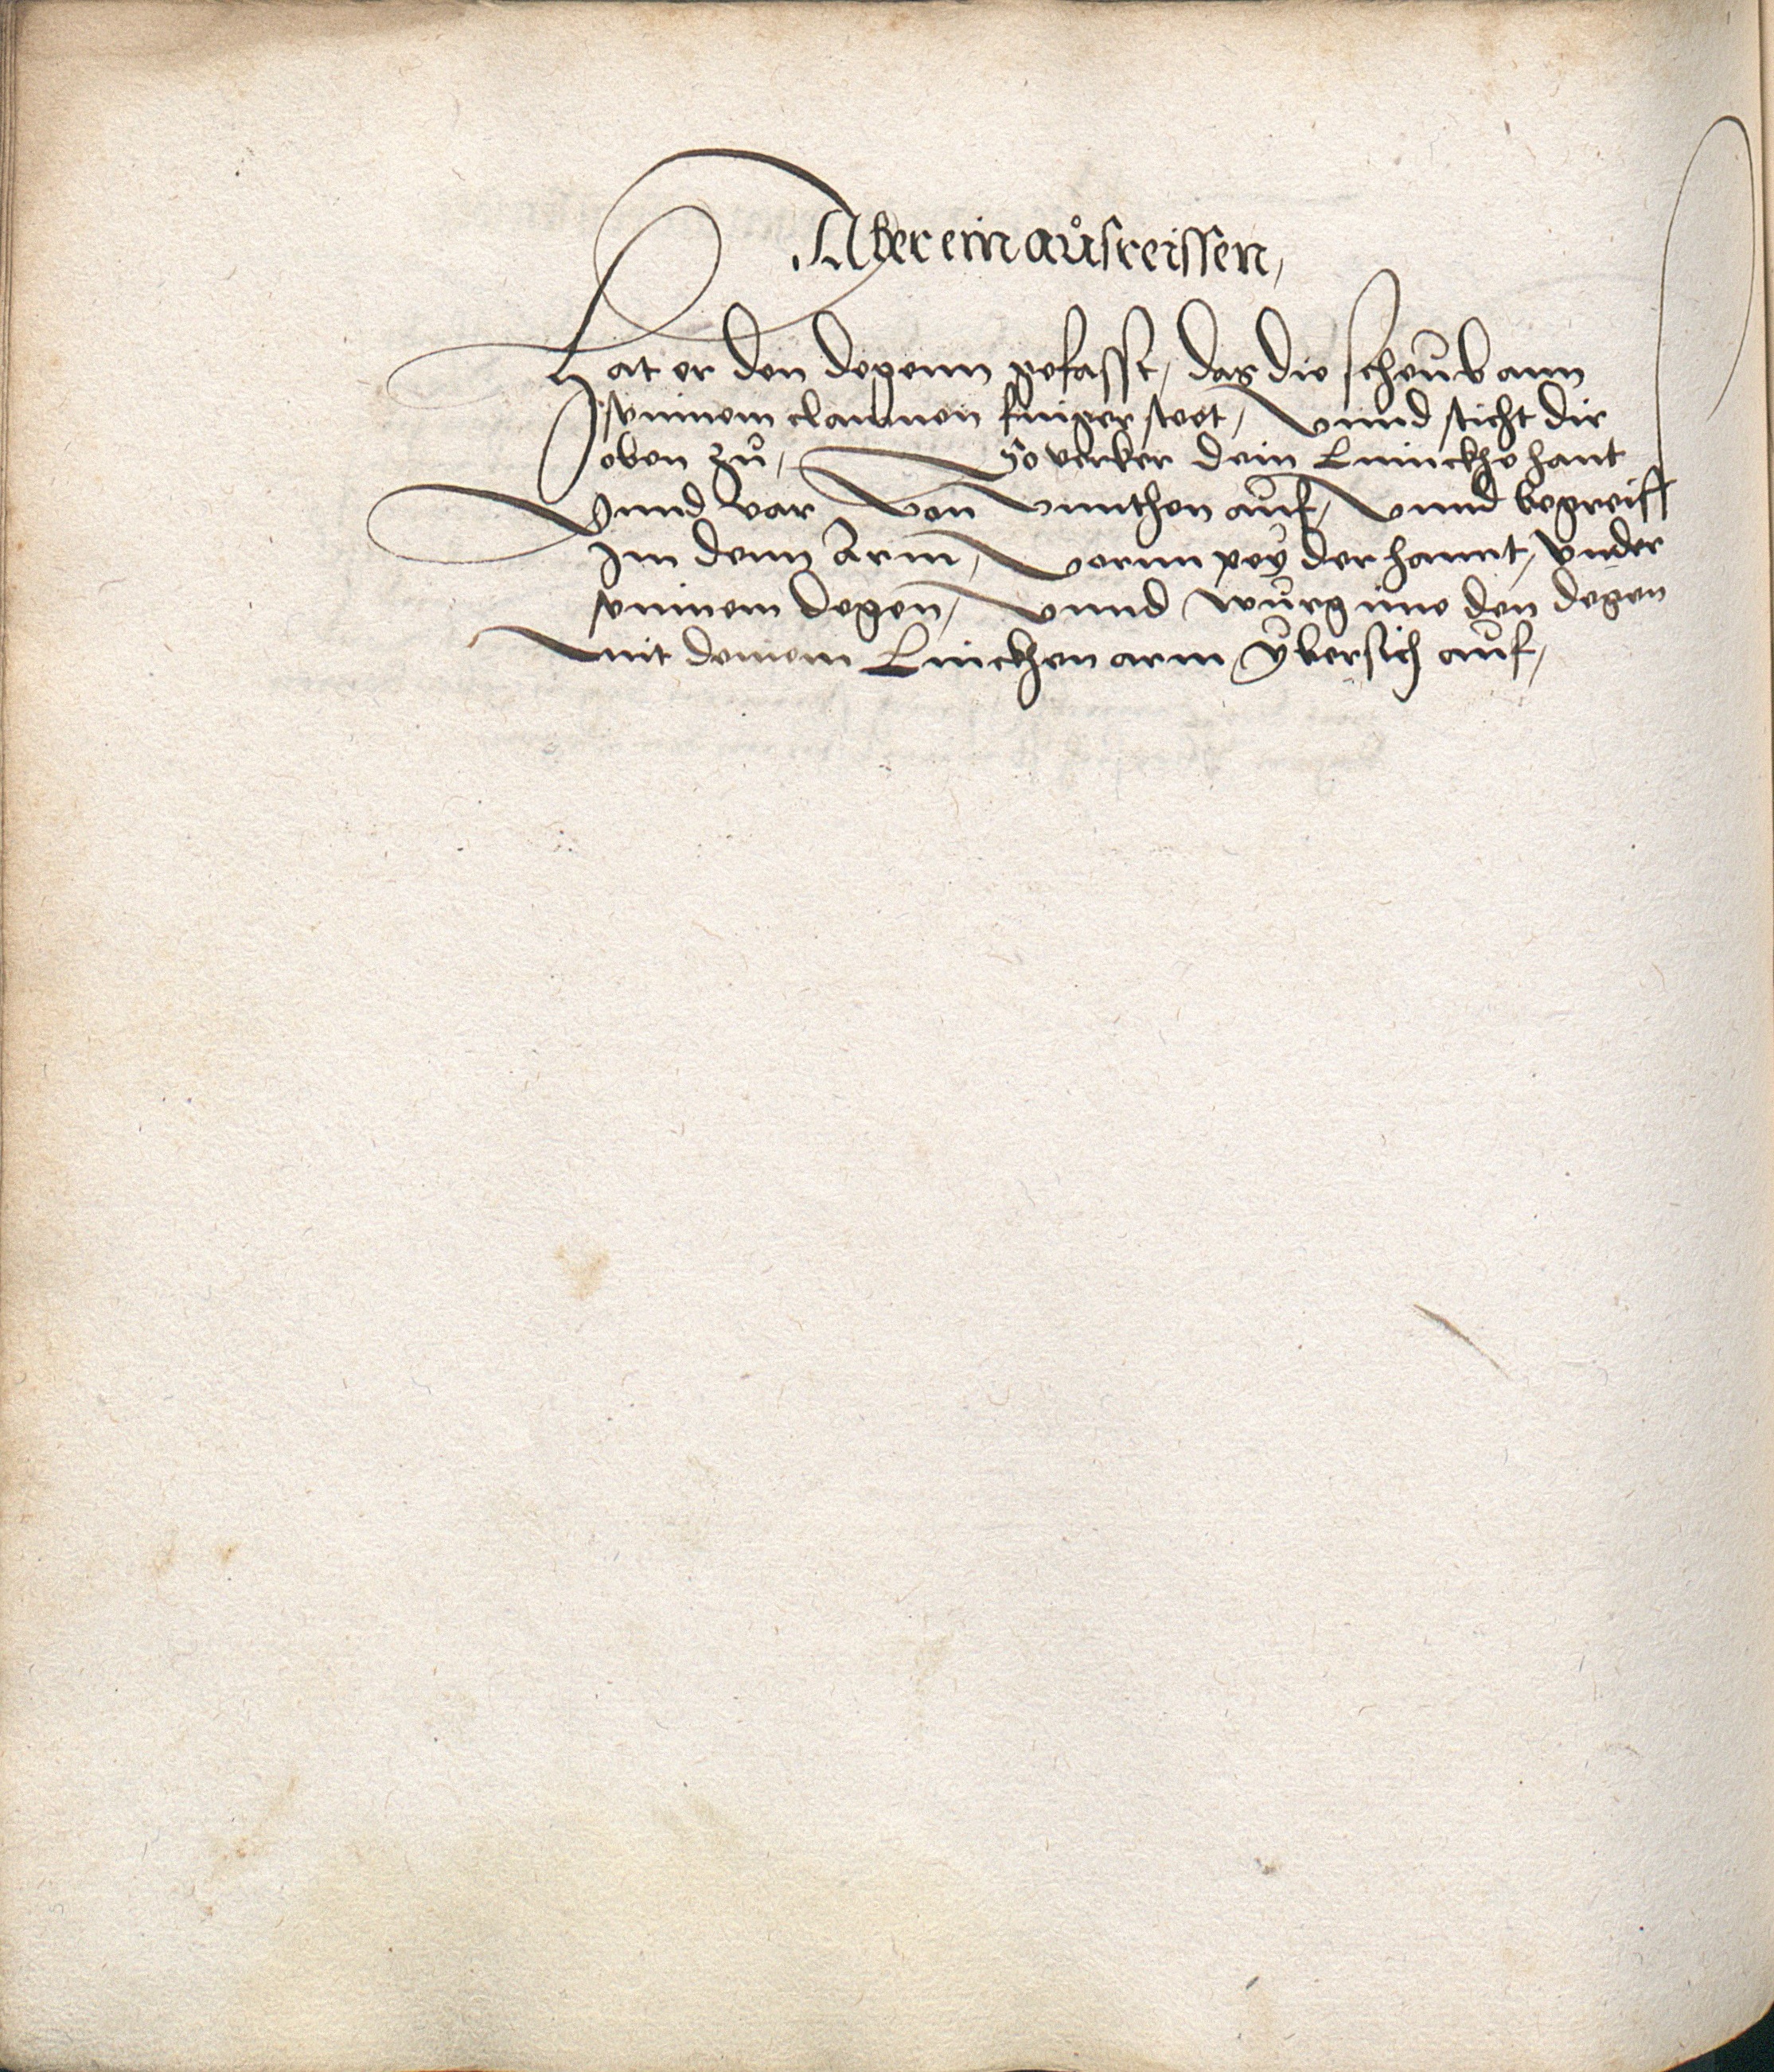 Aber ein aůsreissen,
Hat er den degenn gefasst, das die scheub ann
seinnem clainnen finger steet, vnnd sticht dir
oben zů, So verker dein Linnckhe hant
Vnnd var von vnnthen auf, vnnd begreiff
Im denn Arm, vornn pey der hannt, vnder
seinnem degen, vnnd würg ime den degen
mit deinem Linckhen arm, vbersich auf,